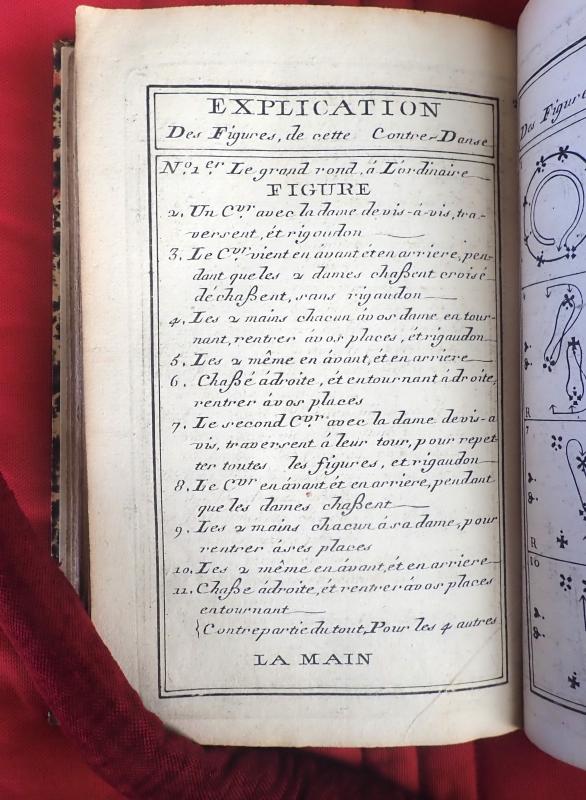 EXPLICATION
Des Figures, de cette Contre-Danse
N.o 1.er Le grand rond, á L'ordinaire
FIGURE
2. Un C.vr avec la dame de vis-á-vis, tra-
versent, ét rigaudon
3. Le C.vr vient en ávant ét en arriere, pen-
dant que les 2 dames chaßent croisé
déchaßent, sans rigaudon
4. Les 2 mains chacun ávos dame en tour-
nant, rentrer avos places, ét rigaudon
5. Les 2 même en ávant, ét en arriere
6. Chaßé ádroite, ét entournant ádroite,
rentrer ávos places
7. Le second C.vr avec la dame de vis-a
vis, traversent á leur tour, pour repet-
ter toutes les figures, et rigaudon
8. Le C.vr en ávant ét en arriere, pendant
que les dames chaßent
9. Les 2 mains chacun ása dame, pour
rentrer áses places
10. Les 2 même en ávant, ét en arriere
11. Chaßé ádroite, ét rentrer ávos places
entournant
{Contrepartie du tout, Pour les 4 autres
LA MAIN
Des Figure
R
7
R
10